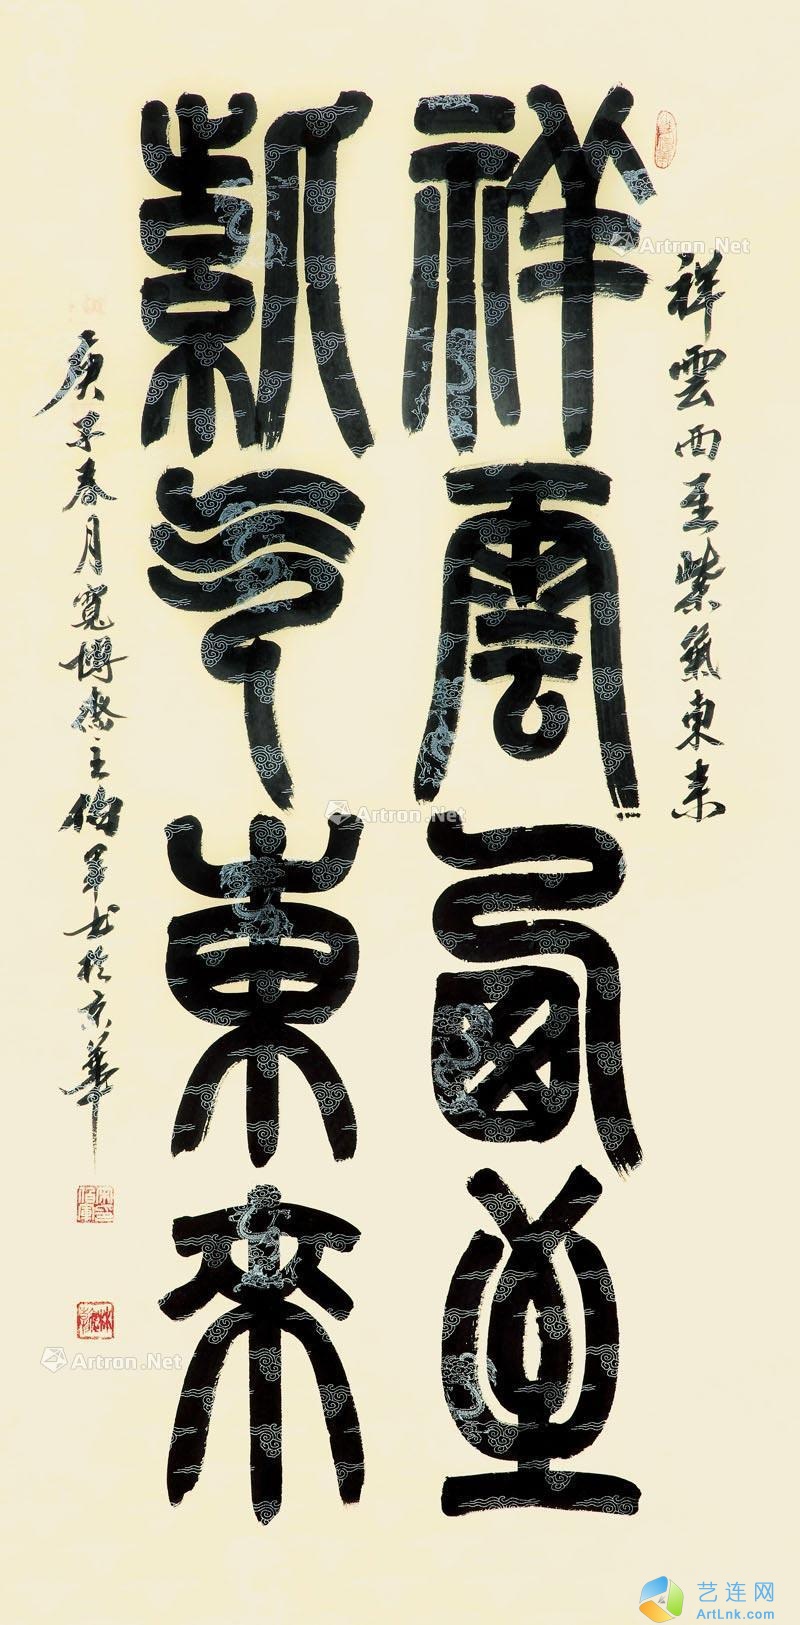 祥雲西至
紫气東來
祥雲西至紫氣東来
庚子春月寬博齋主伯軍书於京華
Artron.Net
Artron.Net
Artron.Net
艺连网
ArtLnk.com